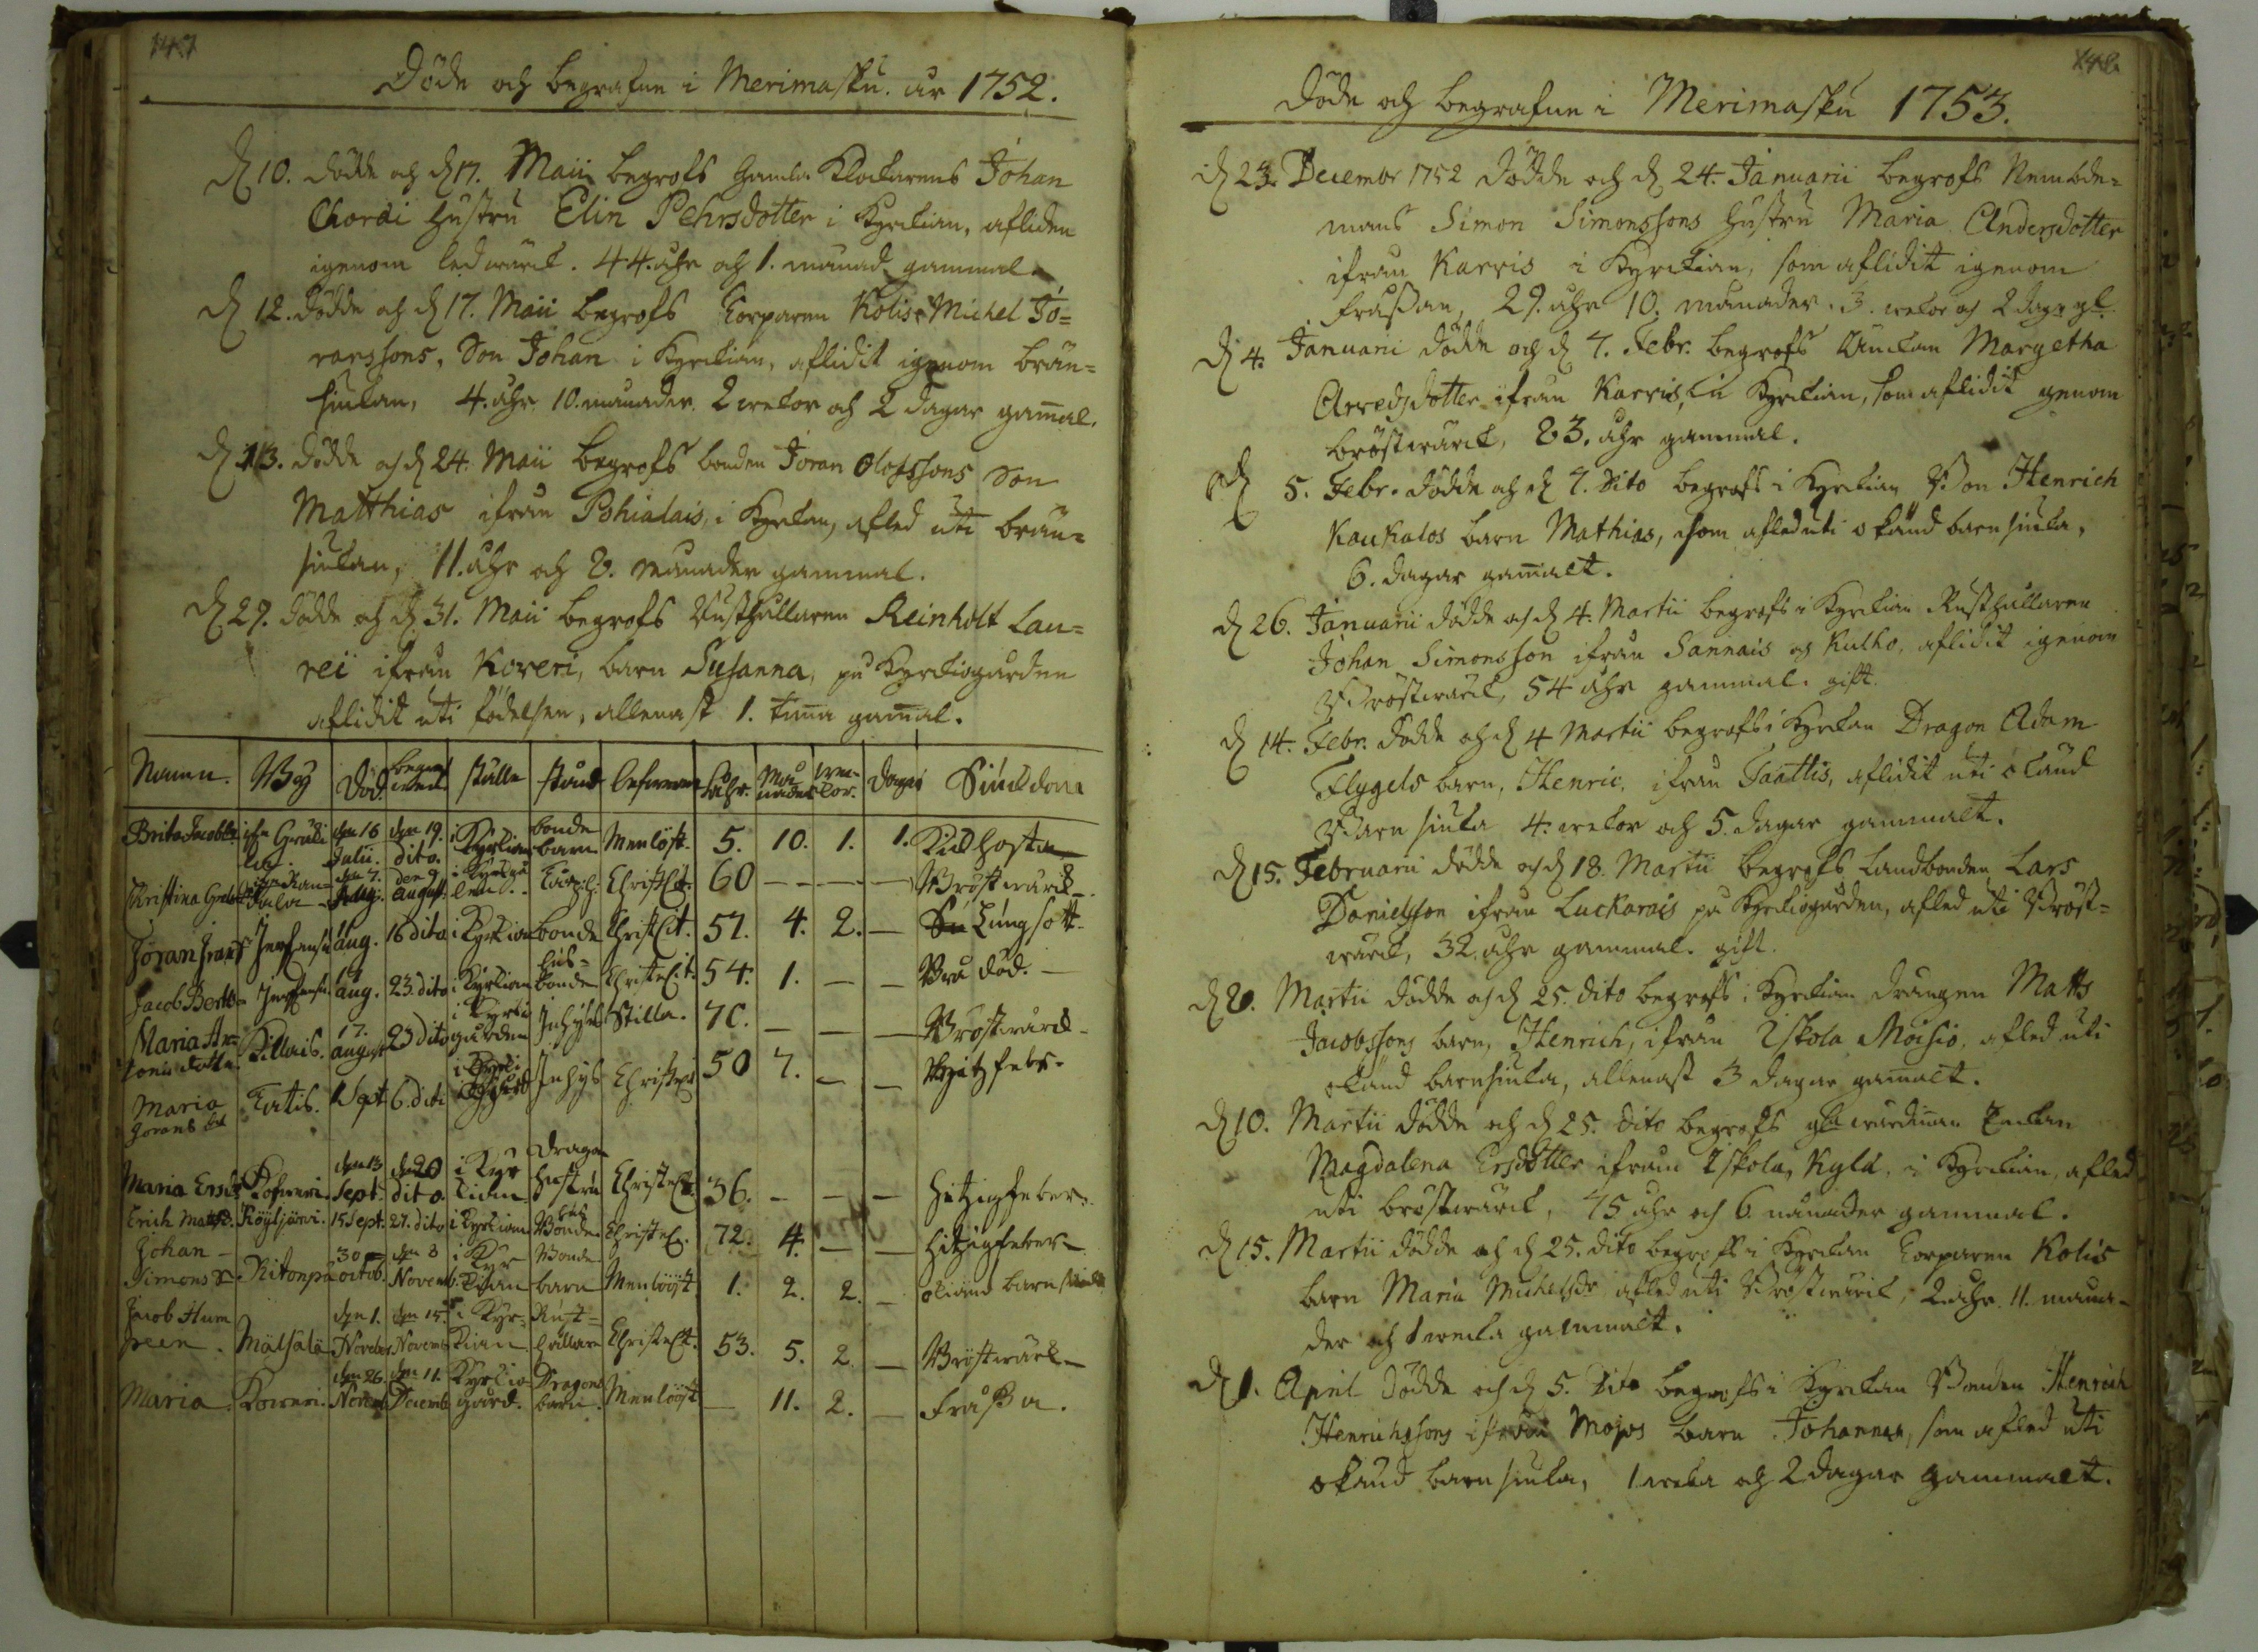 147
Döde och begrafne i Merimasku år 1752.
D. 10. dödde och d. 17. Maii begrofs Gamla Klockarens Johan
Chorái Hustru Elin Pehrsdotter i Kyrckian, afliden
igenom ledwärck. 44. åhr och 1. månad gammal.
D. 12. dödde och d. 17. Maii begrofs Torparen Kolis Michel Jö=
ranssons, Son Johan i Kyrckian, aflidit igenom brän=
siukan, 4. åhr 10. månader 2 wekor och 2 dagar gam̄al.
D. 13. dödde och d. 24. Maii begrofs bonden Jöran Olofssons Son
Matthias ifrån Pohialais, i Kyrckan, afled uti brän=
siukan, 11. åhr och 8. månader gammal.
D. 29. dödde och d. 31. Maii begrofs Rusthållaren Reinholt Lau=
rei ifrån Koveri, barn Susanna, på Kyrckiogården
aflidit uti födelsen, allenast 1. tim̄a gam̄al.
Namn. By Död. begrafwen ställe stånd Åhr. Må nader wec-kor. Dagar Siuckdom
Brita Jacobsdr den 16 Julii. den 19. dito. i Kyrkian bonde barn Menlöst. 5. 10. 1. 1. Kickhosta
Christina 60 — — — Bröstwärck
Jöran aug. 16 dito i Kyrkian bonde Christel. 51. 4. 2. — Lungsott
Jacob aug. 23 dito i Kyrkian bonde Christel. 54. 1. — — Brå död.
Maria An= tons dotter Killais. 17. august 23 dito i Kyrkio gården Inhyses Stilla. 70. — — — Bröstwärck
Maria Görans dot Tatis. 1 Sept 6. dito Inhys Christel 50 7. — — Hitzfeber.
Maria Ersdr Koweri. den 13 Sept. den 20 dito i Kyr kian Dragon hustru Christel. 36. — — — hitzigfeber
Erich Mattss. Köyljärvi. 15 Sept. 27. dito i Kyrkian Bonde Christel. 72. 4. — — hitzigfeber
Johan Simonsson Ritonpä 30 octob. den 8 Novemb. i Kyr kian Bonde barn Menlööst 1. 2. 2. — okiänd barnsiuka
Jacob Hum Mälsälä den 1. Novebr den 15. Novemb i Kyr= kian Rust= hållare Christel. 53. 5. 2. — Bröstwärck
Maria. Koweri. den 26. Novemb den 11. Decemb Kyrkio gård. Dragons barn. Menlööst — 11. 2. — Frassa.
148
Döde och begrafne i Merimasku 1753.
D. 23. December 1752 dödde och d. 24. Januarii begrofs Nembde=
mans Simon Simonssons hustru Maria Andersdotter
ifrån Karvis i Kyrckian, som aflidit igenom
frassan, 29. åhr 10. månader. 3. wekor och 2 dagr gl.
D. 4. Januarii dödde och d. 4. Febr. begrofs Änckan Margetha
Arvedsdotter ifrån Karvis, in Kyrckian, som aflidit genom
bröstwärck, 83. åhr gammal.
D. 5. Febr. dödde och d. 4. dito begrofs i Kyrckian Bon Henrich
Kaukalos barn Mathias, som afled uti okänd barnsiuka,
6. dagar gam̄alt.
D. 26. Januarii dödde och d. 4. Martii begrofs i Kyrckian Rusthållaren
Johan Simonsson ifrån Sannais och Kulho, aflidit igenom
Bröstwärck, 54 åhr gammal. gift.
D. 14. Febr. dödde och d. 4 Martii begrofs i Kyrckan Dragon Adam
Flygels barn, Henric, ifrån Taattis, aflidit uti okänd
Barn siuka 4. wekor och 5. dagar gammalt.
D. 15. Februarii dödde och d. 18. Martii begrofs Landbonden Lars
Danielsson ifrån Luckarais på Kyrckiogården, afled uti Bröst=
wärck, 32. åhr gammal. gift.
D. 8. Martii dödde och d. 25. dito begrofs i Kyrckian drängen Matts
Jacobssons barn, Henrich, ifrån Iskola Moisio. afled uti
okänd barnsiuka, allenast 3 dagar gam̄alt.
D. 10. Martii dödde och d. 25. dito begrofs Enckan
Magdalena Ersdotter ifrån Iskola, Kylä, i Kyrckian, afled
uti bröstwärck, 75 åhr och 6 månader gammal.
D. 15. Martii dödde och d. 25. dito begrofs i Kyrckan Torparen Kolis
barn Maria Michelsdr afled uti Bröstwärck, 2. åhr. 11. måna=
der och 1 wecka gammalt.
D. 1. April dödde och d. 5. dito begrofs i Kyrckan Bonden Henrich
Henrichssons ifrån Moios barn Johannes, som afled uti
okänd barnsiuka, 1 wecka och 2 dagar gammalt.